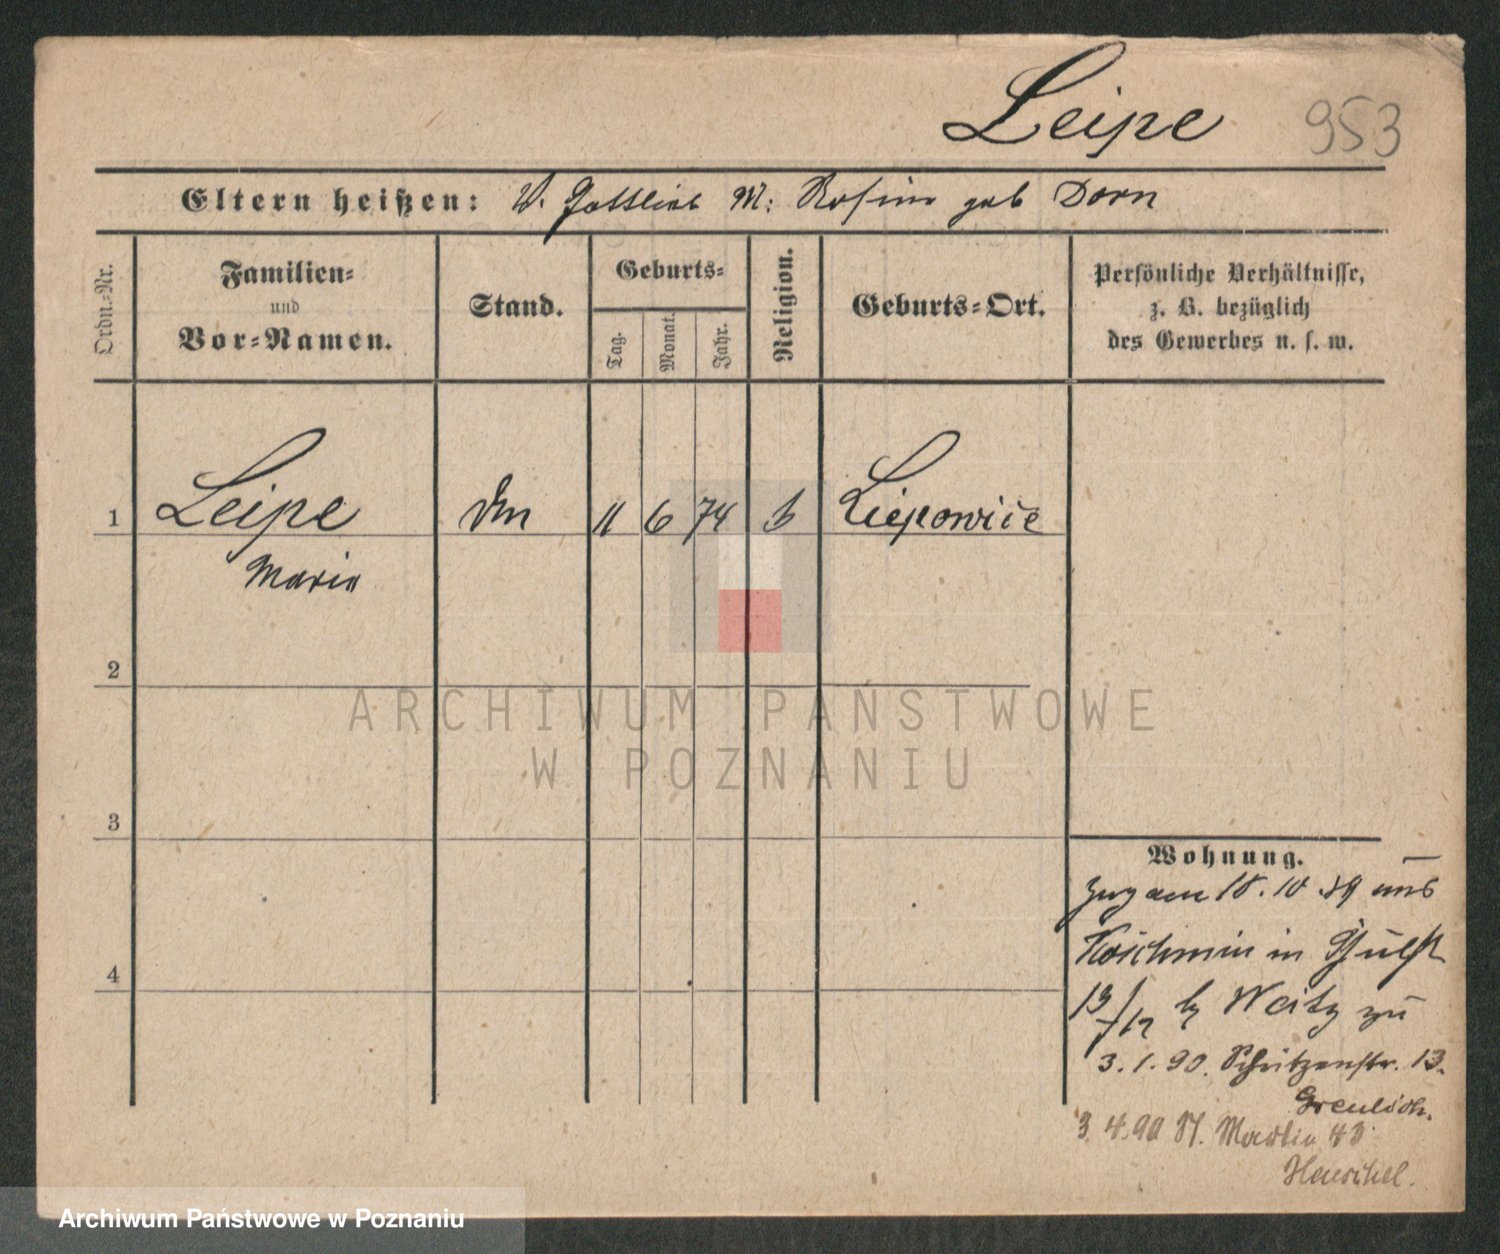 Leipe 953
Eltern heißen: V. Gottlieb M: Rosina geb Dorn
Ordn.-Nr.
Familien-
und
Vor-Namen.
Stand.
Geburts-
Tag.
Monat.
Jahr.
Religion.
Geburts-Ort.
Persönliche Verhältnisse,
z. B. bezüglich
des Gewerbes u. s. w.
1 Leipe 11 6 74 Liepowice
Maria
2
3
4
Wohnung.
Zug am 10.10.89 aus
Koschmin in
13/12 by Weitz zu
3.1.90. Schützenstr. 13.
Greulich.
3 4.90 St. Martin 43
Henschel.
ARCHIWUM PAŃSTWOWE
W POZNANIU
Archiwum Państwowe w Poznaniu